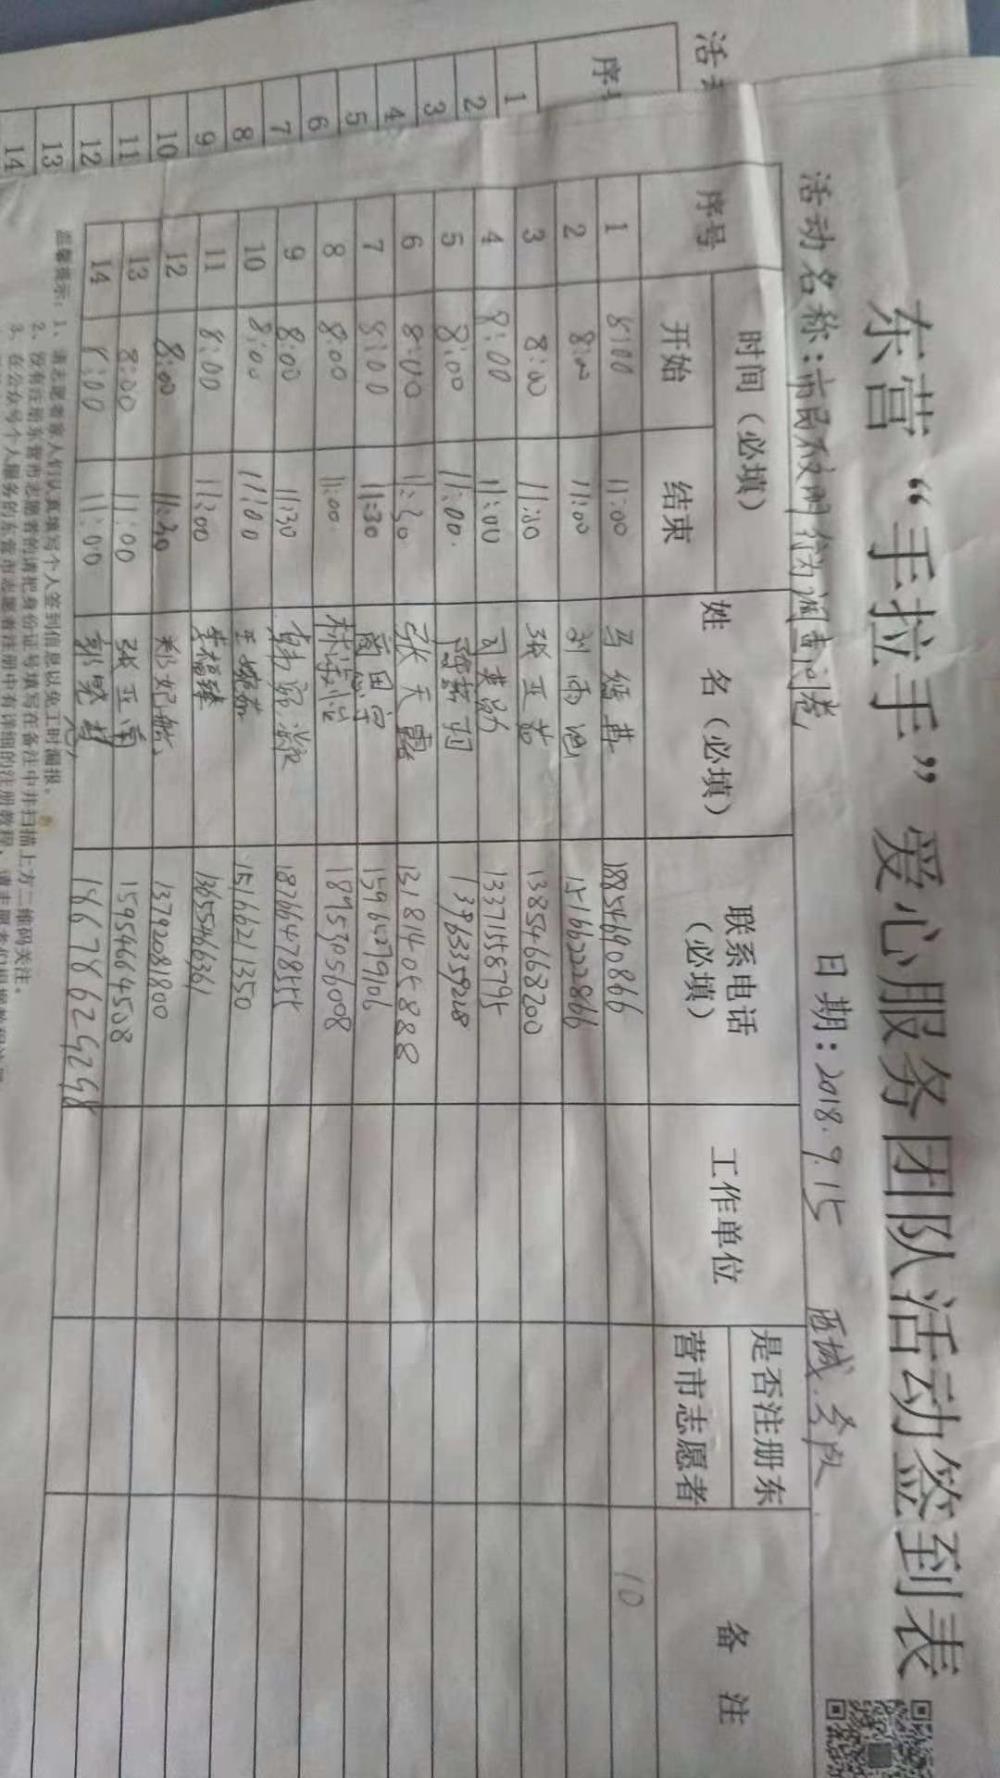 东营“手拉手”爱心服务团队活动签到表
活动名称：市民文明行为调查问卷 日期：2018.9.15 西城
序号 时间（必填） 姓名（必填） 联系电话（必填） 工作单位 是否注册东营市志愿者 备注
开始 结束
1 8:00 11:00 马 18854690866 10
2 8:00 11:00 刘雨 15166222866
3 8:00 11:30 张亚茹 13854668200
4 8:00 11:00 13371558795
5 8:00 11:00 13963359228
6 8:00 11:30 张天露 13181405888
7 8:00 11:30 商田宇 15964279106
8 8:00 11:00 林 18953056008
9 8:00 11:30 韩 18766478555
10 8:00 11:00 王婉茹 15166213350
11 8:00 11:00 李福臻 13655466361
12 8:00 11:30 郑妃航 13792081800
13 8:00 11:00 张亚南 15954664508
14 8:00 11:00 郭晓村 18678625258
温馨提示：1、请志愿者家人们认真填写个人签到信息以免工时漏报。
2、没有注册东营市志愿者的请把身份证号填写在备注中并扫描上方二维码关注。
3、在公众号个人服务的东营市志愿者注册中有详细的注册教程，请志愿者们根据教程注册
活
序
1
2
3
4
5
6
7
8
9
10
11
12
13
14